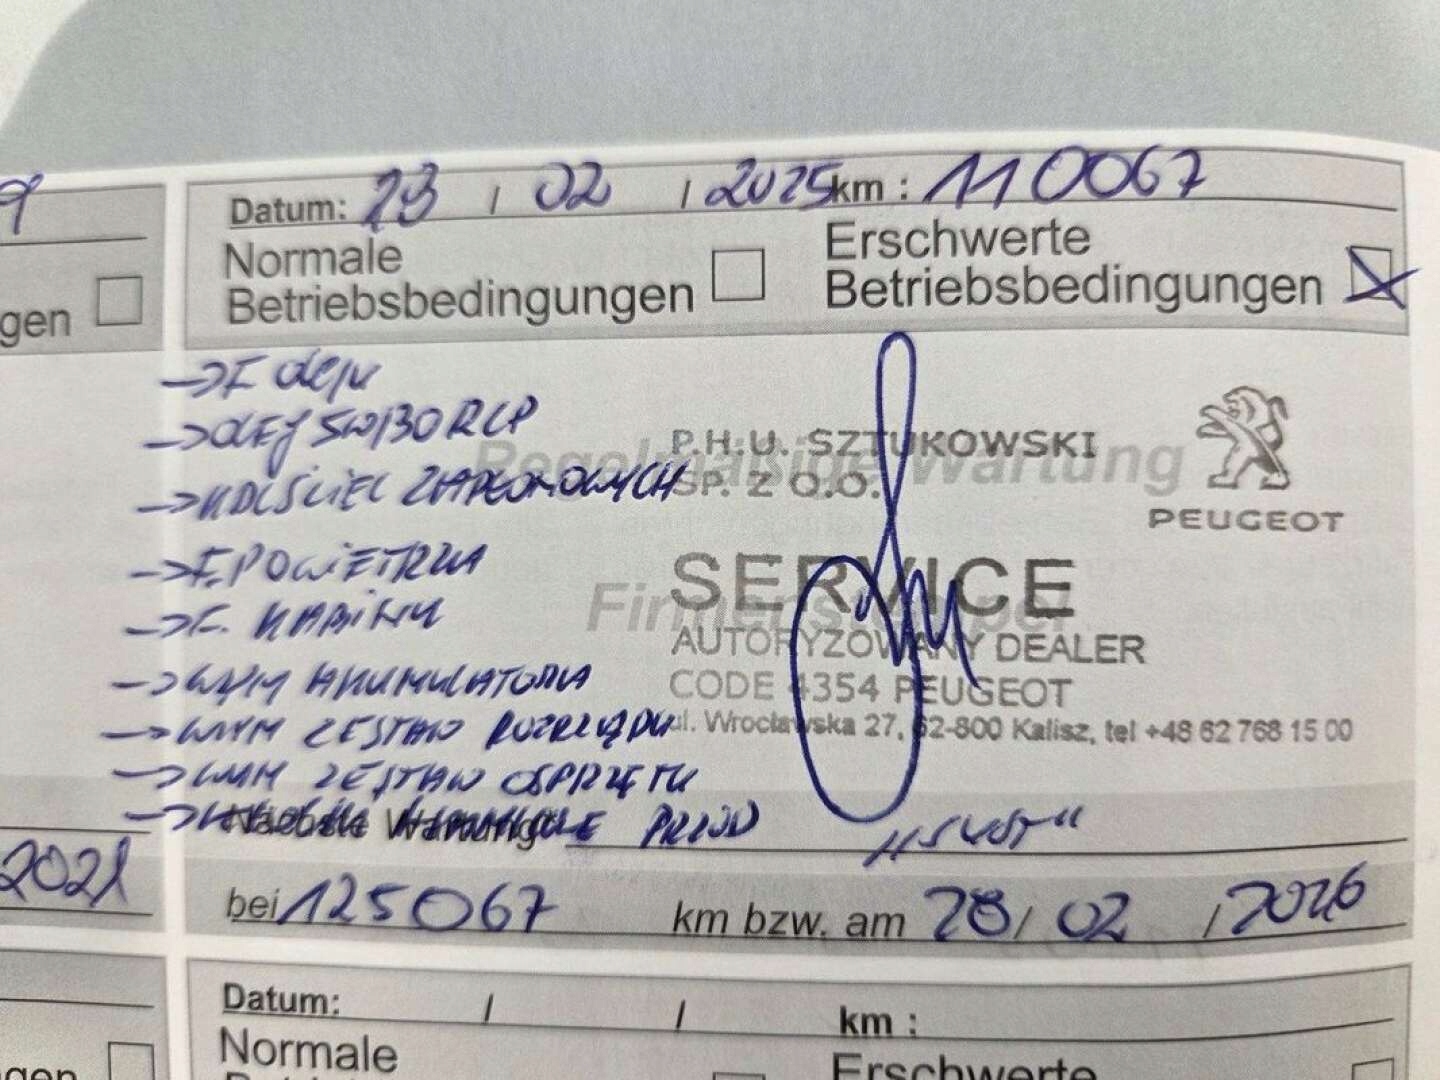 9
Datum: 28 / 02 / 2025 km : 110067
Normale
Betriebsbedingungen
Erschwerte
Betriebsbedingungen
gen
→ F Oleju
→ OLEJ 5W30 RCP
P.H.U. SZTUKOWSKI
SP. Z O.O.
Regelmäßige Wartung
PEUGEOT
→ ZAPŁONOWYCH
→ F. POWIETRZA
→ F. KABINY
SERVICE
Firmenstempel
AUTORYZOWANY DEALER
CODE 4354 PEUGEOT
ul. Wrocławska 27, 62-800 Kalisz, tel +48 62 768 15 00
→ WYM AKUMULATORA
→ WYM ZESTAW ROZRZĄDU
→ WYM ZESTAW OSPRZĘTU
→ HAMULCE PRZÓD
Nächste Wartung
2021
bei 125067 km bzw. am 28 / 02 / 2026
Datum: / / km :
Normale
Erschwerte
gen